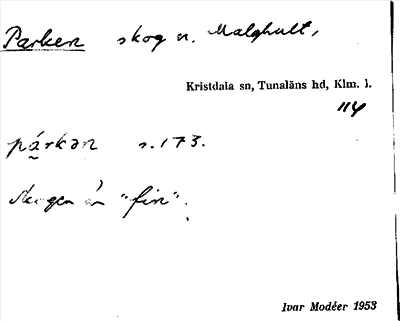 Parken skog n. Malghult,
Kristdala sn, Tunaläns hd, Klm. l.
114
párkən s. 173.
Skogen är "fin".
Ivar Modéer 1953